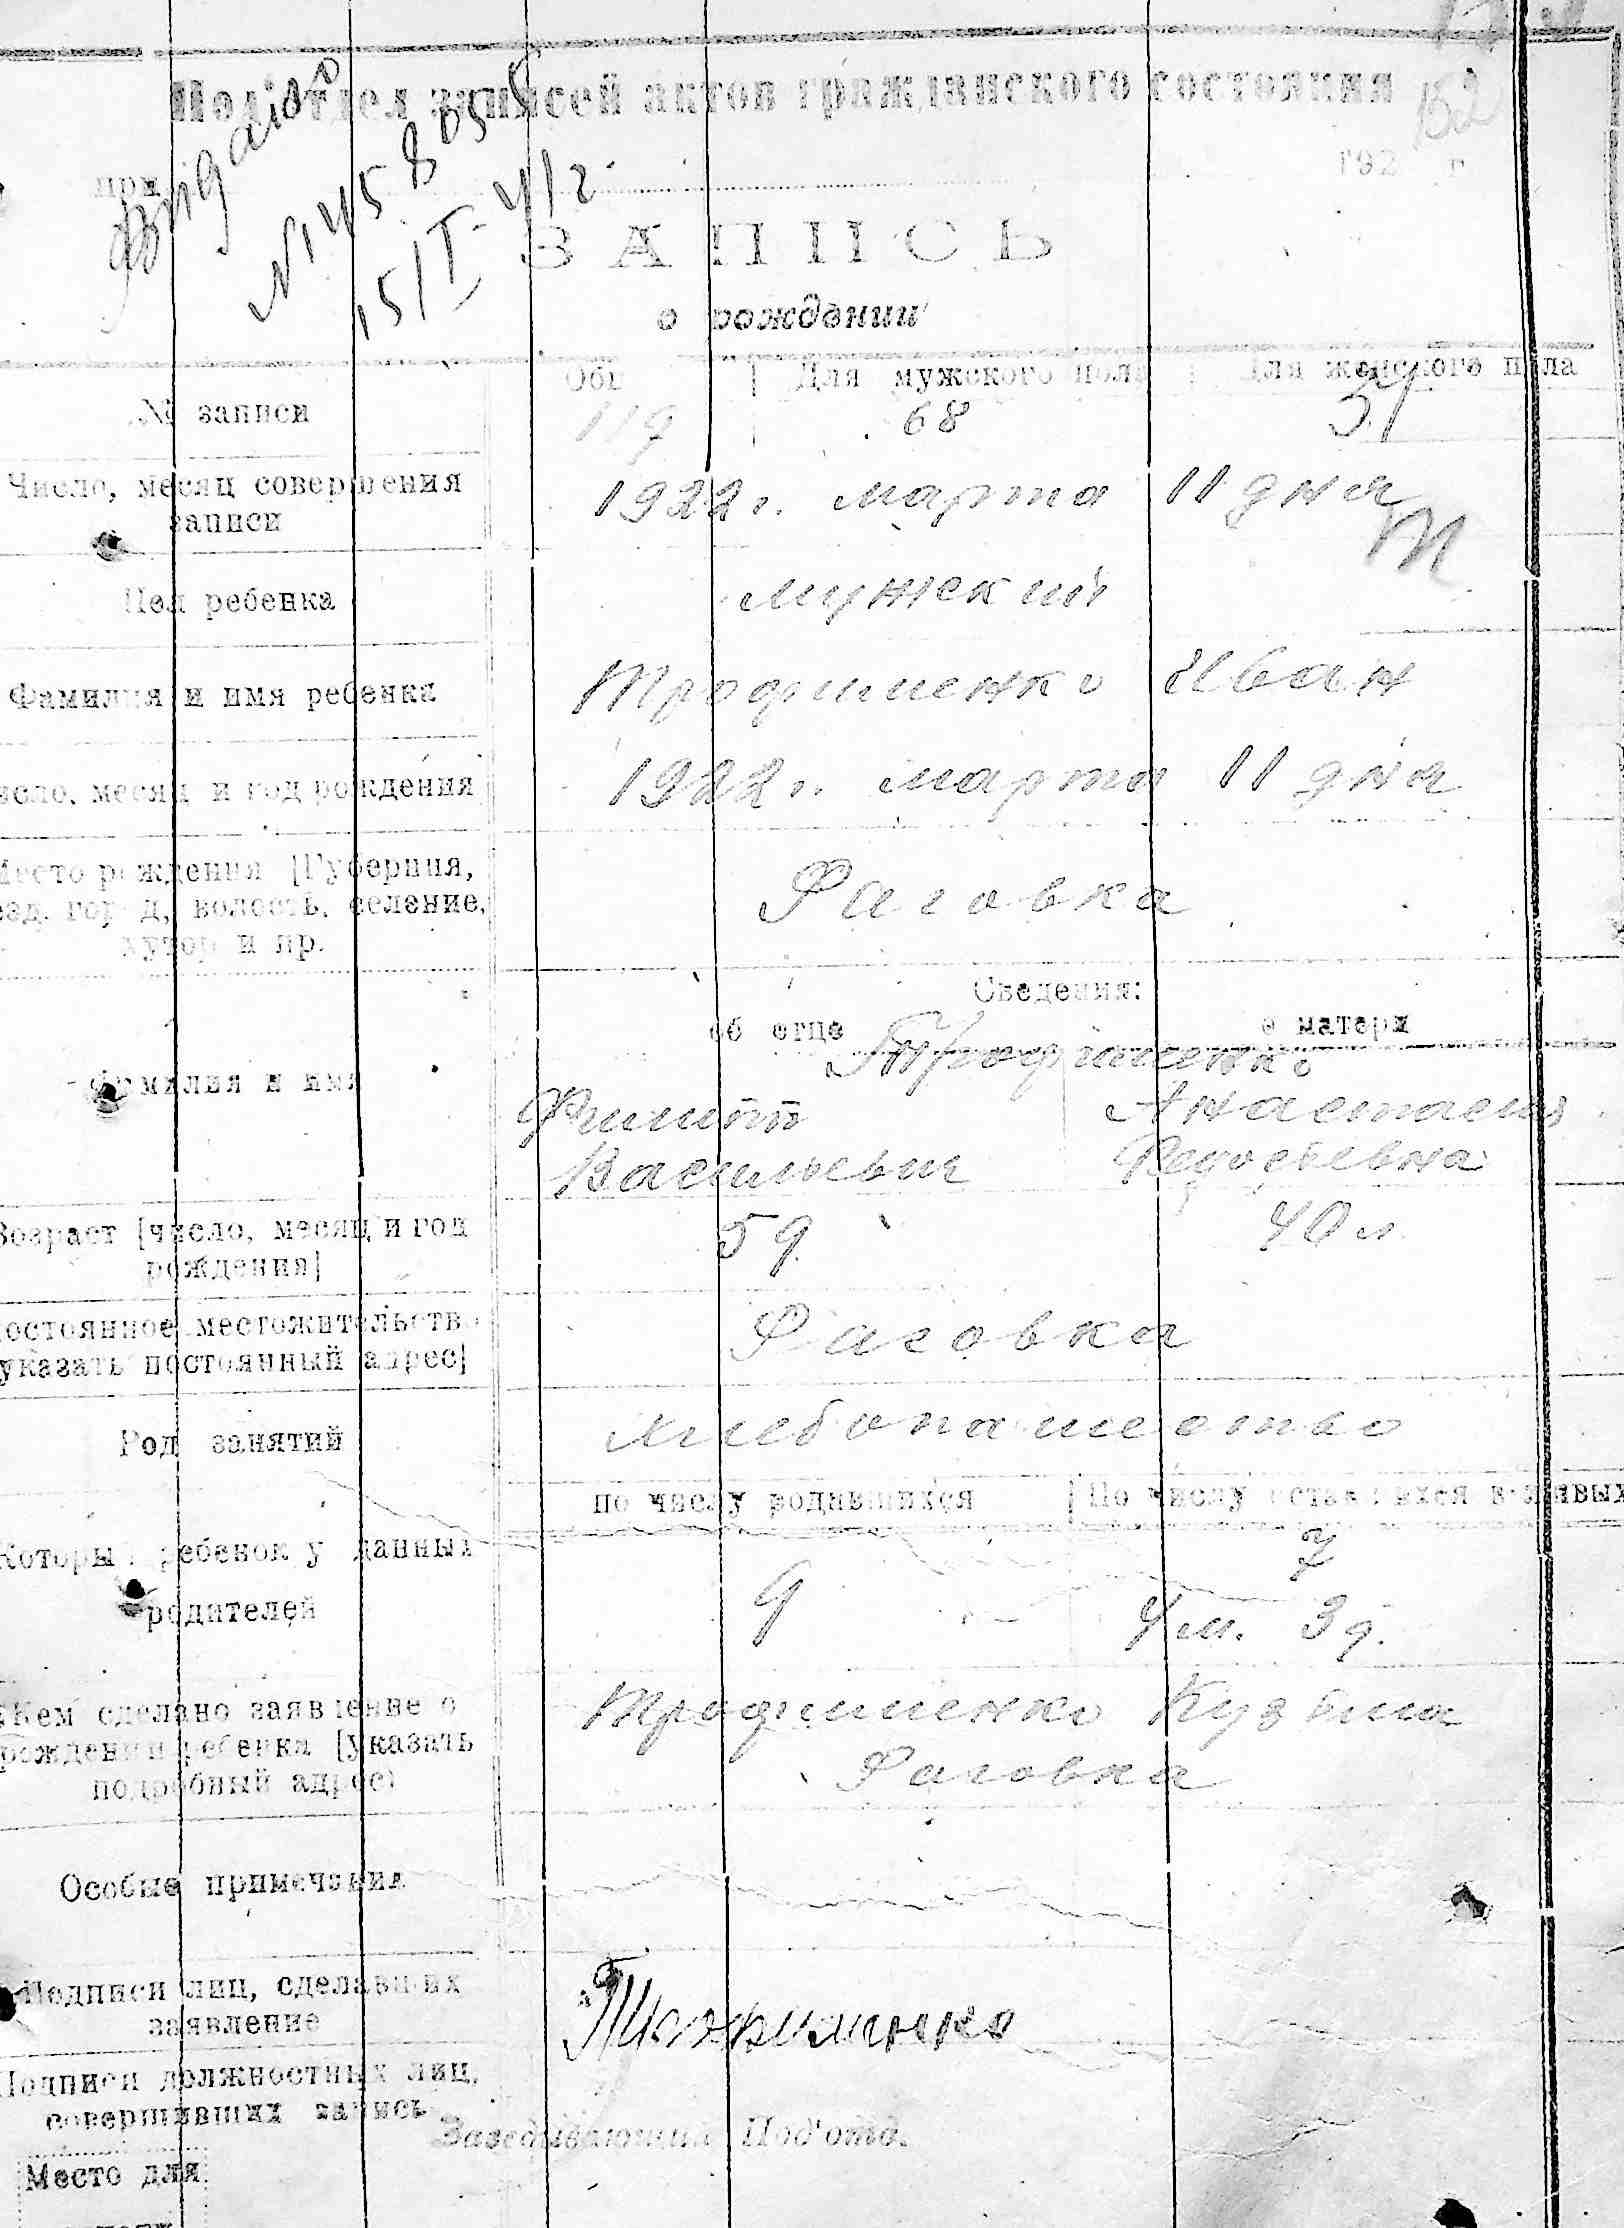 Под'отдел записей актов гражданского состояния
152
при 192 г
N 145
ЗАПИСЬ
о рождении
Общ | Для мужского пола | Для женского пола
№ записи 119 68 51
Число, месяц совершения 1922 г. марта 11 дня
записи
Пол ребенка мужский
Фамилия и имя ребенка Трофименко Иван
число, месяц и год рождения 1922 г. марта 11 дня
Место рождения [Губерния,
уезд, город, волость, селение, Раговка
хутор и пр.
Сведения:
об отце о матери
Трофименко
Фамилия и имя
Филипп Анастасия
Васильевич Федосьевна
Возраст [число, месяц и год 59 40 л.
рождения]
Постоянное местожительство Раговка
указать постоянный адрес]
Род занятий хлебопашество
по числу родившихся | По числу оставшихся в живых
Который ребенок у данных 7
родителей 9 4 м. 3 д.
Кем сделано заявление о Трофименко Кузьма
рождении ребенка [указать
подробный адрес) Раговка
Особые примечания
Подписи лиц, сделавших Трофименко
заявление
Подписи должностных лиц,
совершивших запись
Заведывающий Под'отд.
Место для